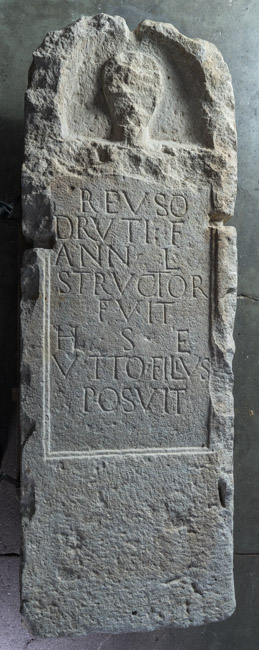 REVSO
DRVTI·F
ANN L
STRVCTOR
FVIT
H S E
VTTO·FILVS
POSVIT